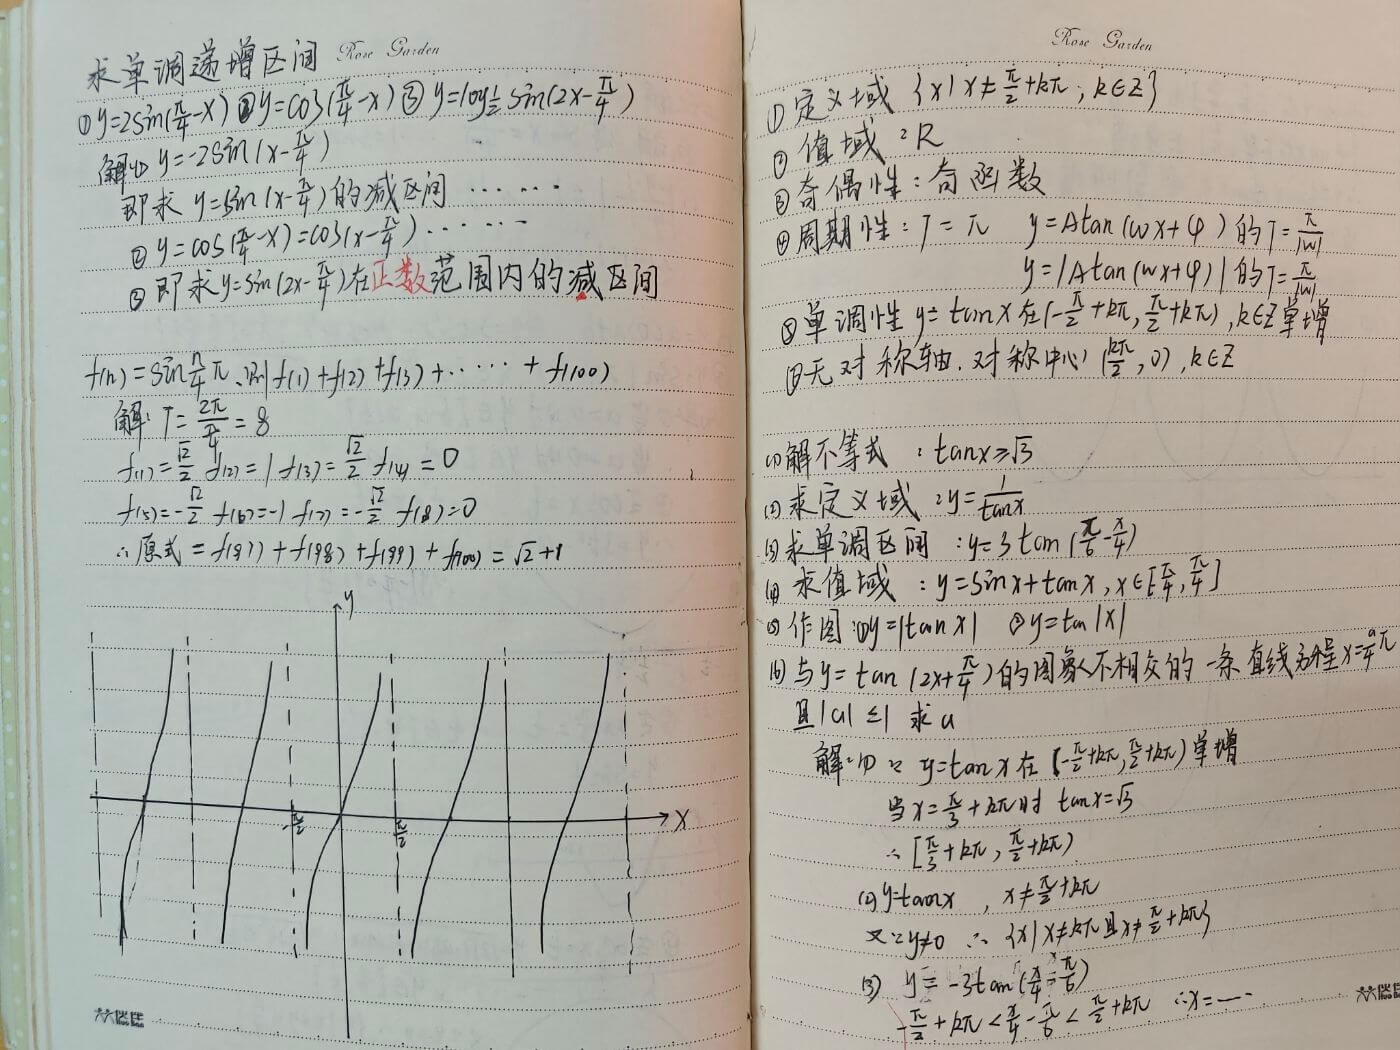 Rose Garden
求单调递增区间
① y=2sin(π/4-x) ② y=cos(π/4-x) ③ y=log½ sin(2x-π/4)
解:① y=-2sin(x-π/4)
即求 y=sin(x-π/4)的减区间 ……
② y=cos(π/4-x)=cos(x-π/4)……
③ 即求y=sin(2x-π/4)在正数范围内的减区间
f(n)=sin n/4 π,则f(1)+f(2)+f(3)+……+f(100)
解: T=2π/(π/4)=8
f(1)=√2/2 f(2)=1 f(3)=√2/2 f(4)=0
f(5)=-√2/2 f(6)=-1 f(7)=-√2/2 f(8)=0
∴原式=f(97)+f(98)+f(99)+f(100)=√2+1
y
-π/2 π/2 x
Rose Garden
① 定义域 {x|x≠π/2+kπ, k∈Z}
② 值域:R
③ 奇偶性:奇函数
④ 周期性:T=π y=Atan(wx+φ)的T=π/|w|
y=|Atan(wx+φ)|的T=π/|w|
⑤ 单调性 y=tanx在(-π/2+kπ,π/2+kπ),k∈Z单增
⑥ 无对称轴.对称中心(kπ/2,0),k∈Z
(1) 解不等式:tanx≥√3
(2) 求定义域:y=1/tanx
(3) 求单调区间:y=3tan(π/6-x/4)
(4) 求值域:y=sinx+tanx,x∈[-π/4,π/4]
(5) 作图:①y=|tanx| ②y=tan|x|
(6) 与y=tan(2x+π/4)的图象不相交的一条直线方程x=a/4π
且|a|≤1 求a
解:(1) ∵ y=tanx在(-π/2+kπ,π/2+kπ)单增
当x=π/3+kπ时 tanx=√3
∴ [π/3+kπ,π/2+kπ)
(2) y=tanx , x≠π/2+kπ
又∵y≠0 ∴ {x|x≠kπ且x≠π/2+kπ}
(3) y=-3tan(x/4-π/6)
-π/2+kπ<x/4-π/6<π/2+kπ ∴x=……